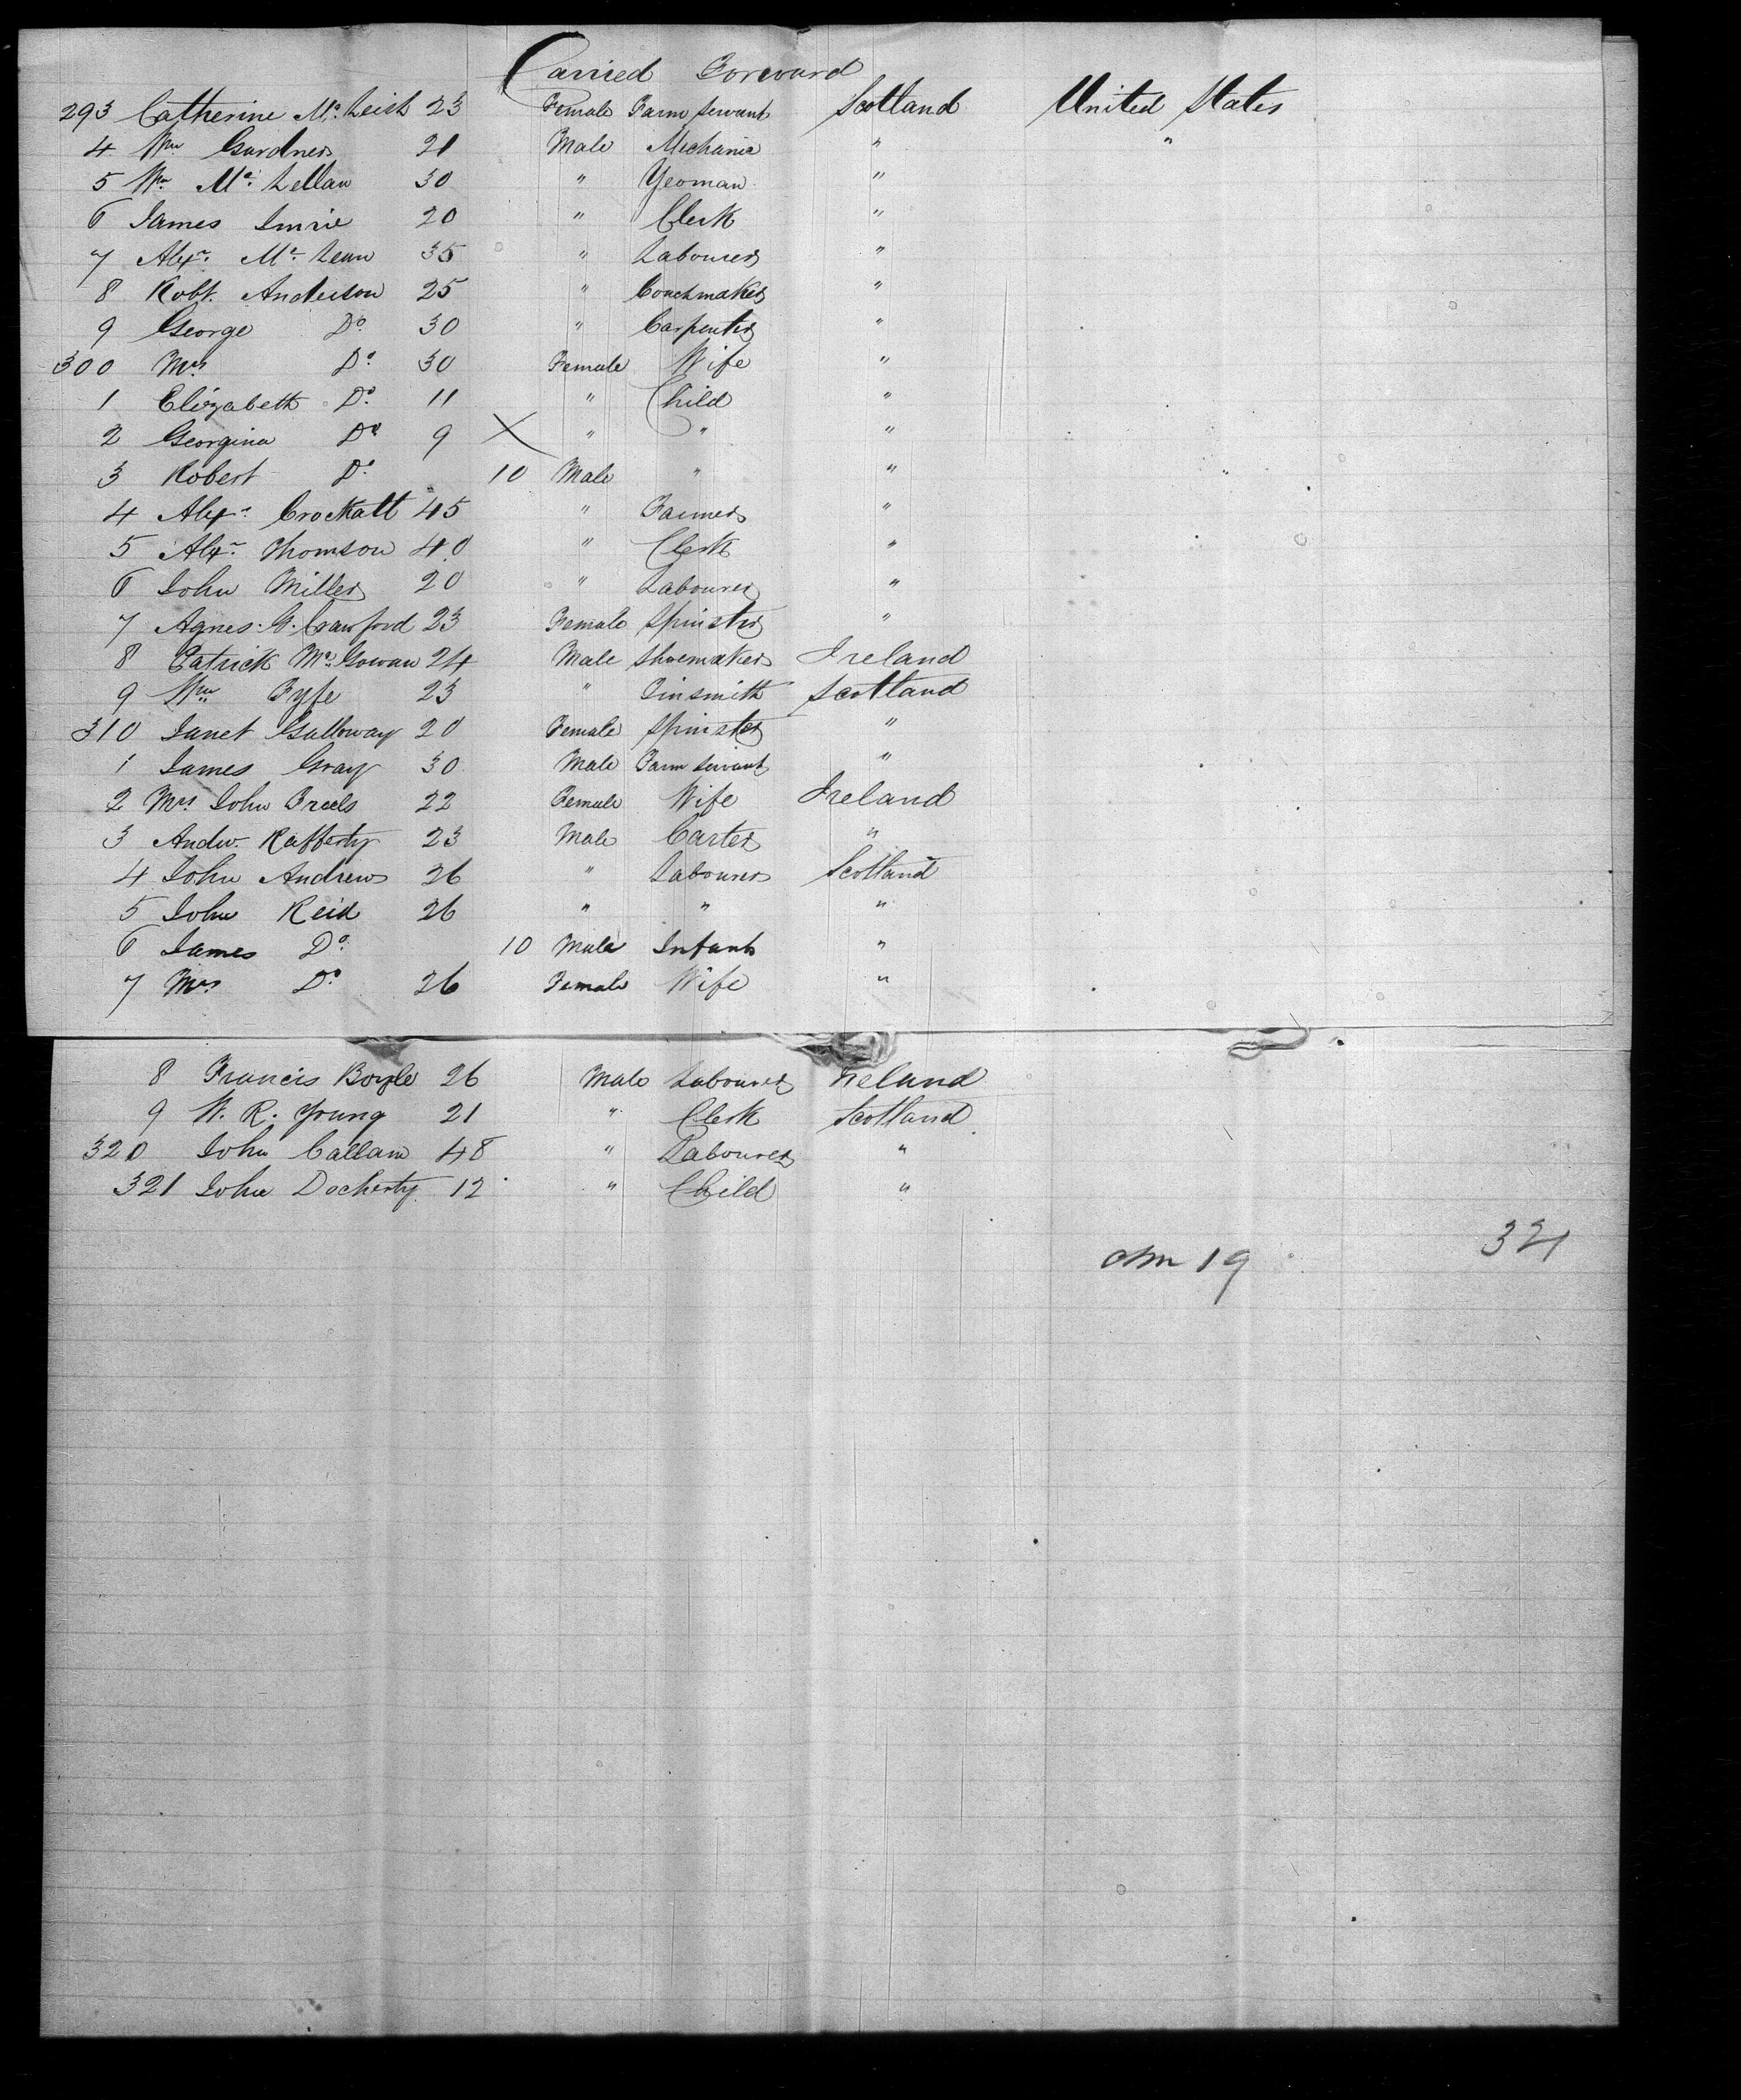 Carried Forward
293 Catherine Mc. Leish 23 Female Farm Servant Scotland United States
4 Wm Gardner 21 Male Mechanic " "
5 Wm. Mc. Lellan 30 " Yeoman "
6 James Imrie 20 " Clerk "
7 Alexr. Mc. Lean 35 " Labourer "
8 Robt. Anderson 25 " Coachmaker "
9 George Do. 30 " Carpenter "
300 Mrs Do. 30 Female Wife "
1 Elizabeth Do. 11 " Child "
2 Georgina Do 9 X " " "
3 Robert Do. 10 Male " "
4 Alexr. Crockatt 45 " Farmer "
5 Alexr. Thomson 40 " Clerk "
6 John Miller 20 " Labourer "
7 Agnes. G. Crawford 23 Female Spinster "
8 Patrick Mc. Gowan 24 Male Shoemaker Ireland
9 Wm Fyfe 23 " Tinsmith Scotland
310 Janet Galloway 20 Female Spinster "
1 James Gray 30 Male Farm Servant "
2 Mrs. John Freels 22 Female Wife Ireland
3 Andw. Rafferty 23 Male Carter "
4 John Andrew 26 " Labourer Scotland
5 John Reid 26 " " "
6 James Do. 10 Male Infant "
7 Mrs Do. 26 Female Wife "
8 Francis Boyle 26 Male Labourer Ireland
9 W. R. Young 21 " Clerk Scotland
320 John Callam 48 " Labourer "
321 John Docherty 12 " Child "
19 321